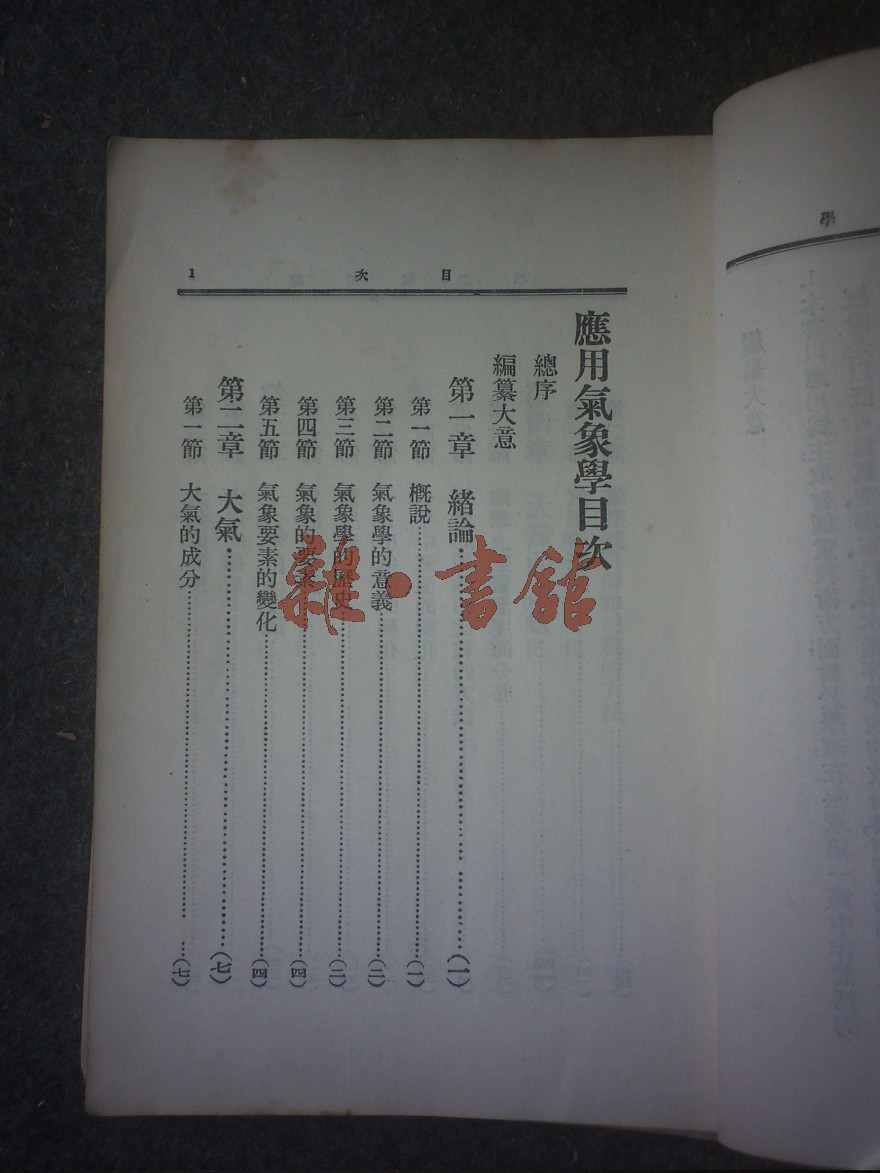 目次 1
應用氣象學目次
總序
編纂大意
第一章 緒論……(一)
第一節 概說……(一)
第二節 氣象學的意義……(二)
第三節 氣象學的歷史……(二)
第四節 氣象的要素……(四)
第五節 氣象要素的變化……(四)
第二章 大氣……(七)
第一節 大氣的成分……(七)
雜·書館
學
編纂大意